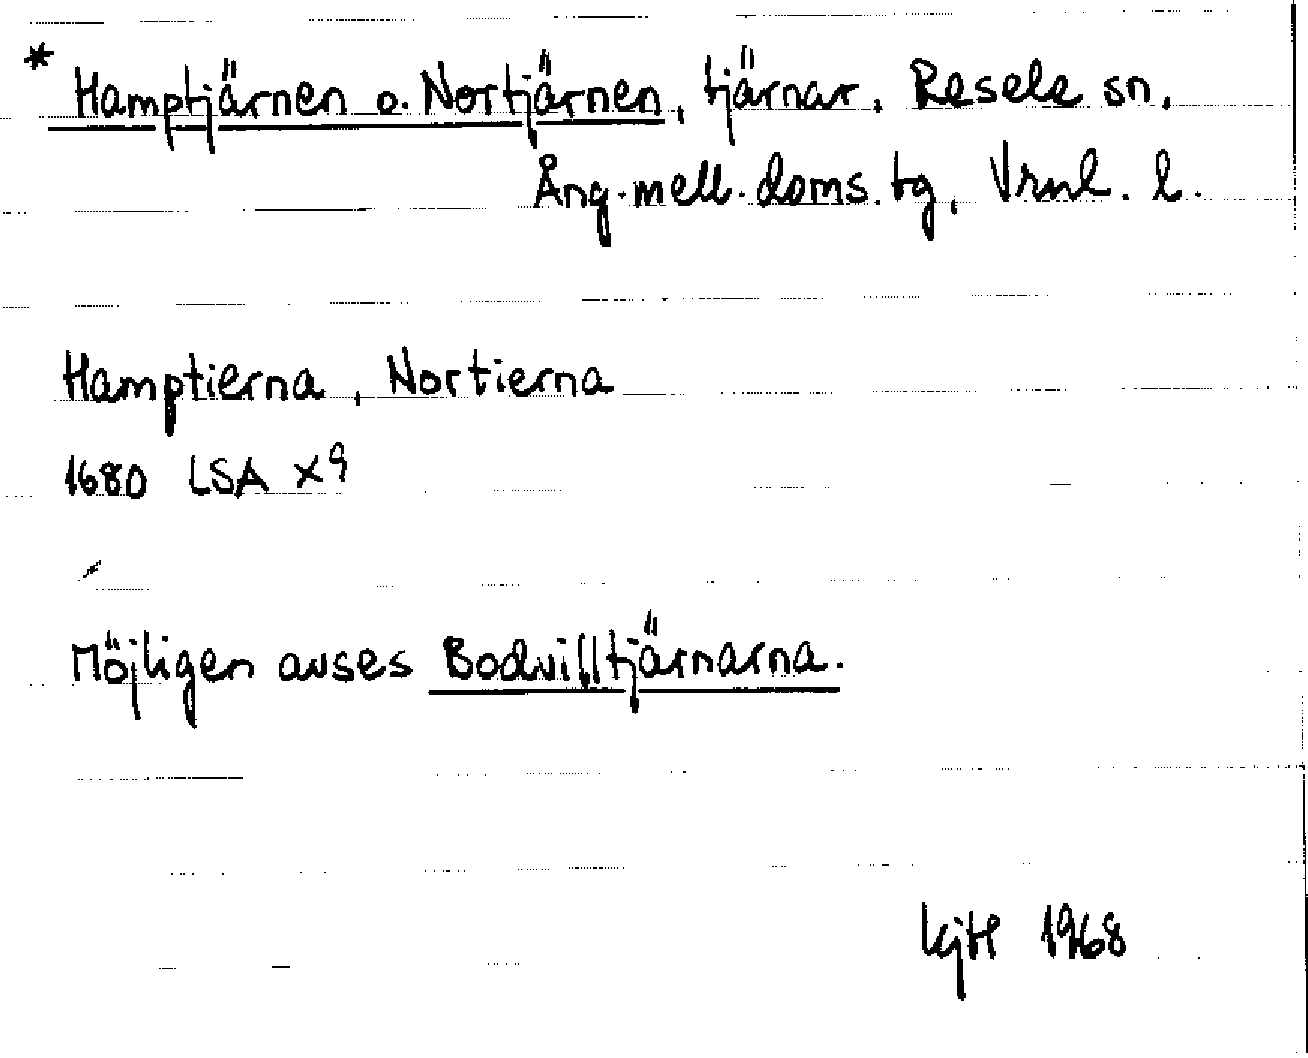 * Hamptjärnen o. Nortjärnen, tjärnar, Resele sn,
Ång. mell. doms. tg, Vrnl. l.
Hamptierna, Nortierna
1680 LSA X9
Möjligen avses Bodvilltjärnarna.
KjtH 1968